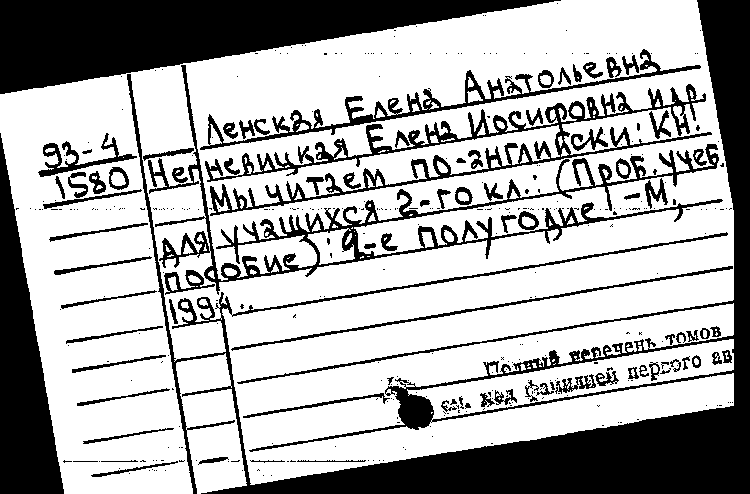 Ленская, Елена Анатольевна
93-4
1580
Непневицкая, Елена Иосифовна и др.
Мы читаем по-английски: Кн!
для учащихся 2-го кл.: (Проб. учеб.
пособие): 2-е полугодие! - М.;
199
Полный перечень томов
см. под фамилией первого ав